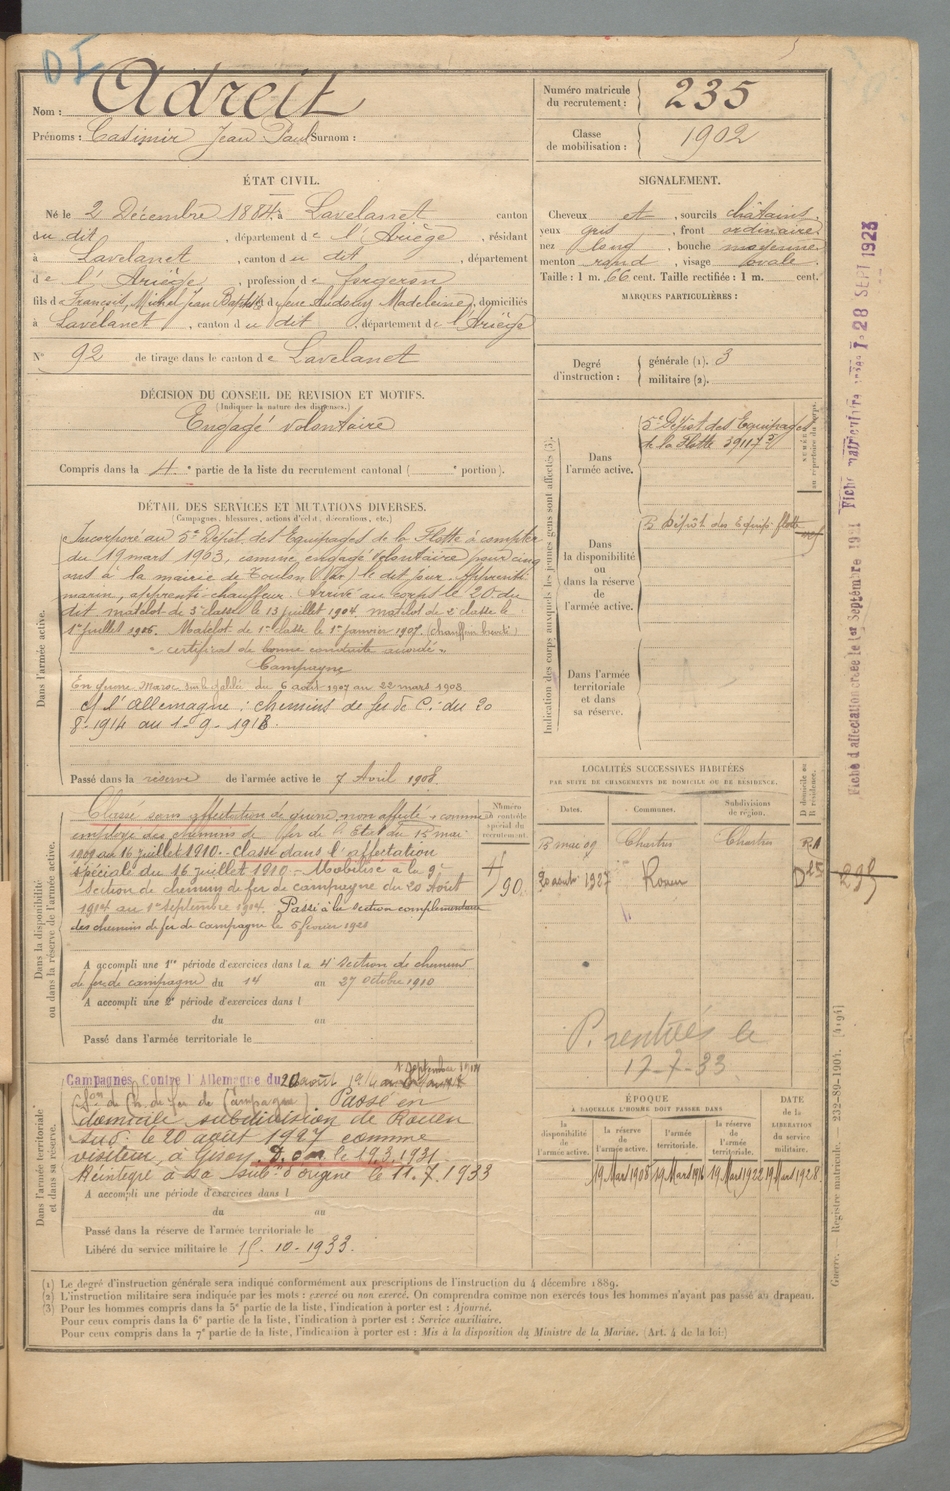 Nom : Adreit
Prénoms : Casimir Jean Paul Surnom :
Numéro matricule du recrutement : 235
Classe de mobilisation : 1902
ÉTAT CIVIL.
Né le 2 Décembre 1884 à Lavelanet canton
du dit, département de l'Ariège, résidant
à Lavelanet, canton du dit, département
de l'Ariège, profession de forgeron
fils de François, Michel Jean Baptiste et de Madeleine, domiciliés
à Lavelanet, canton du dit, département de l'Ariège
N° 92 de tirage dans le canton de Lavelanet
SIGNALEMENT.
Cheveux et, sourcils châtains.
yeux gris, front ordinaire
nez long, bouche moyenne
menton rond, visage ovale.
Taille : 1 m. 66 cent. Taille rectifiée : 1 m. cent.
MARQUES PARTICULIÈRES :
Degré d'instruction : générale (1). 3
militaire (2).
DÉCISION DU CONSEIL DE REVISION ET MOTIFS.
(Indiquer la nature des dispenses.)
Engagé volontaire
Compris dans la 4e partie de la liste du recrutement cantonal ( e portion).
DÉTAIL DES SERVICES ET MUTATIONS DIVERSES.
(Campagnes, blessures, actions d'éclat, décorations, etc.)
Dans l'armée active.
Incorporé au 5e Dépôt des Equipages de la Flotte à compter
du 19 mars 1903, comme engagé volontaire pour cinq
ans à la mairie de Toulon (Var) le dit jour. Apprenti
marin, apprenti-chauffeur. Arrivé au corps le 20 du
dit matelot de 3e classe le 13 juillet 1904 matelot de 2e classe le
1er juillet 1906. Matelot de 1re classe le 1er janvier 1907 (chauffeur breveté)
"certificat de bonne conduite accordé"
Campagne
En guerre Maroc sur le du 6 août 1907 au 22 mars 1908
C/ l'Allemagne : chemins de fer de C. : du 20
8-1914 au 1-9-191
Passé dans la réserve de l'armée active le 7 Avril 1908.
Dans la disponibilité ou dans la réserve de l'armée active.
Classé sans affectation de guerre, non affecté comme
employé des chemins de fer de l'Etat du 15 mai
1909 au 16 juillet 1910. - classé dans l'affectation
spéciale du 16 juillet 1910 - Mobilisé à la 9e
section de chemins de fer de campagne du 20 Août
1914 au 1er septembre 1914. Passé à la section complémentaire
des chemins de fer de campagne le 5 février 1921
Numéro au contrôle spécial du recrutement.
90
A accompli une 1re période d'exercices dans la 4e section de chemins
de fer de campagne du 14 au 27 octobre 1910
A accompli une 2e période d'exercices dans l
du au
Passé dans l'armée territoriale le
Dans l'armée territoriale et dans sa réserve.
Campagnes Contre l'Allemagne du 20 août 1914 au
Son de Ch. de fer de Campagne) Passé en
domicile subdivision de Rouen
le 20 août 1927 comme
visiteur à D. le 19.3.1931.
Réintégré à sa subon d'origine le 11.7.1933
A accompli une période d'exercices dans l
du au
Passé dans la réserve de l'armée territoriale le
Libéré du service militaire le 15-10-1933.
Indication des corps auxquels les jeunes gens sont affectés (3).
Dans l'armée active.
5e Dépôt des Equipages
de la Flotte 39117
NUMÉRO au répertoire du corps.
Dans la disponibilité ou dans la réserve de l'armée active.
5e Dépôt des Equip. flotte
Dans l'armée territoriale et dans sa réserve.
LOCALITÉS SUCCESSIVES HABITÉES
PAR SUITE DE CHANGEMENTS DE DOMICILE OU DE RÉSIDENCE.
Dates. Communes. Subdivisions de région. D domicile ou R résidence.
13 mai 09 Chartres Chartres
20 août 1927 Rouen D
P. rentrés le
17-7-33
ÉPOQUE
À LAQUELLE L'HOMME DOIT PASSER DANS
la disponibilité de l'armée active. la réserve de l'armée active. l'armée territoriale. la réserve de l'armée territoriale. DATE de la LIBÉRATION du service militaire.
19 Mars 1908 19 Mars 1916 19 Mars 1922 19 Mars 1928
Fiche d'affectation créée le 1er Septembre 19
Fiche matricule 28 SEPT 1923
Guerre. Registre matricule. — 232-89-1904. [4194]
(1) Le degré d'instruction générale sera indiqué conformément aux prescriptions de l'instruction du 4 décembre 1889.
(2) L'instruction militaire sera indiquée par les mots : exercé ou non exercé. On comprendra comme non exercés tous les hommes n'ayant pas passé au drapeau.
(3) Pour les hommes compris dans la 5e partie de la liste, l'indication à porter est : Ajourné.
Pour ceux compris dans la 6e partie de la liste, l'indication à porter est : Service auxiliaire.
Pour ceux compris dans la 7e partie de la liste, l'indication à porter est : Mis à la disposition du Ministre de la Marine. (Art. 4 de la loi.)